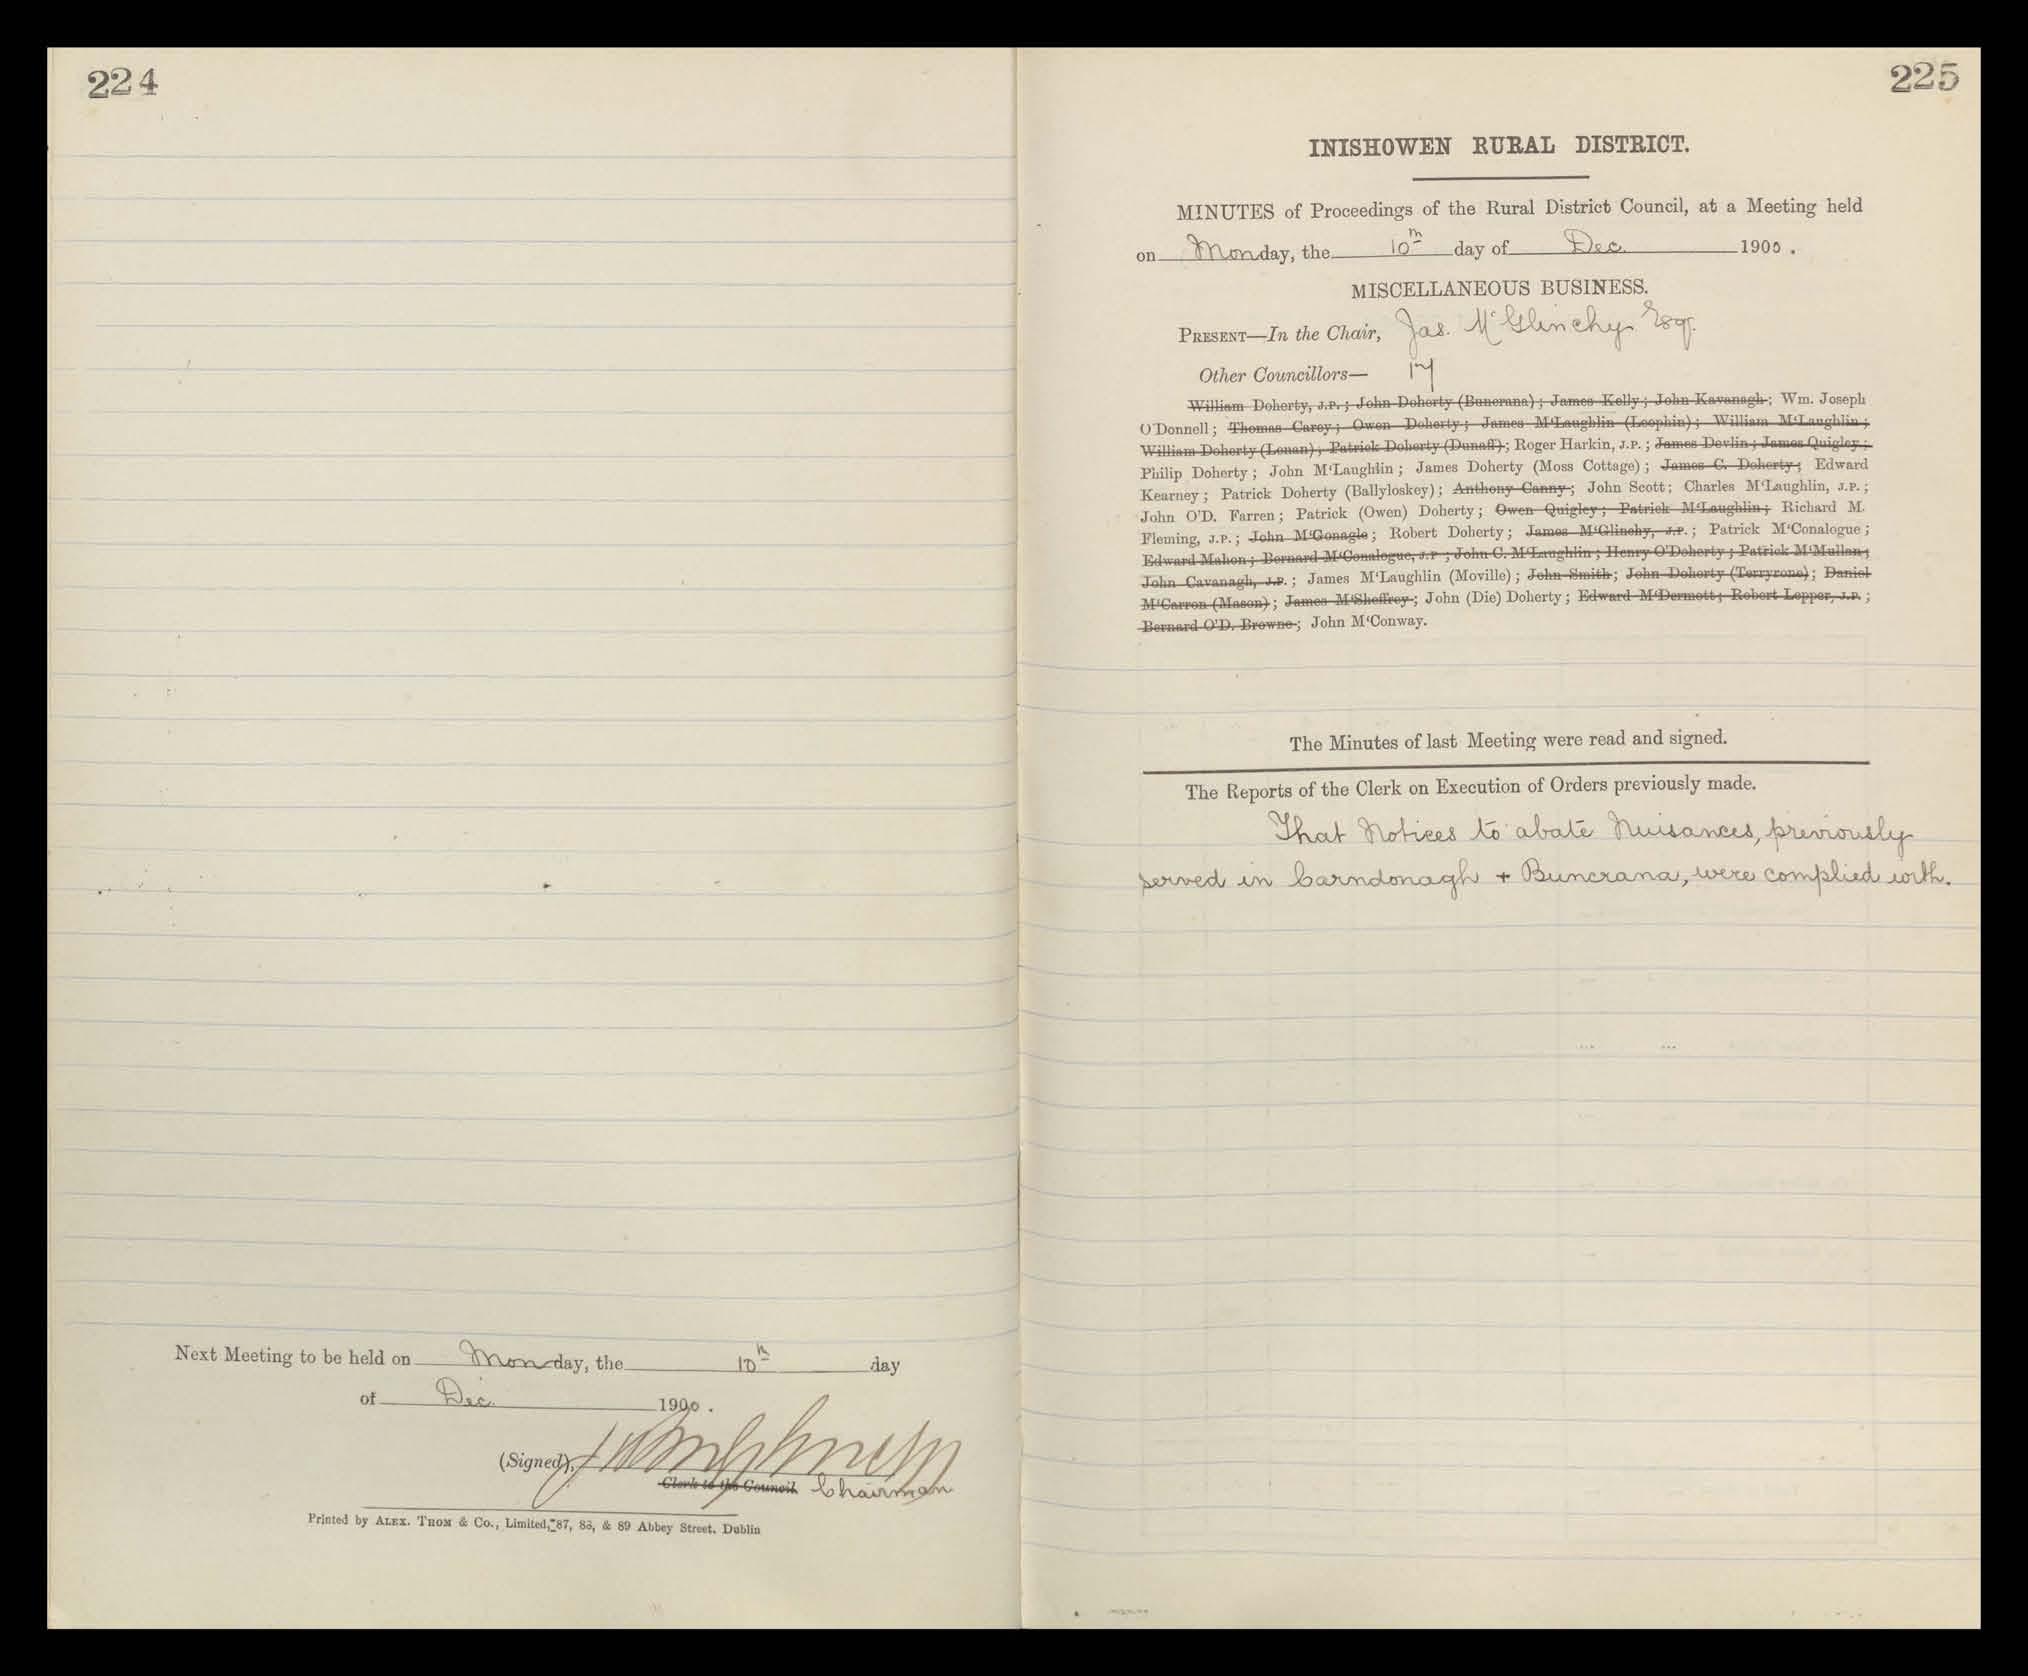 224
Next Meeting to be held on Monday, the 10th day
of Dec. 1900.
(Signed),
Clerk to the Council Chairman
Printed by ALEX. THOM & Co., Limited, 87, 88, & 89 Abbey Street, Dublin
225
INISHOWEN RURAL DISTRICT.
MINUTES of Proceedings of the Rural District Council, at a Meeting held
on Monday, the 10th day of Dec. 1900.
MISCELLANEOUS BUSINESS.
PRESENT—In the Chair, Jas. McGlinchy Esqr.
Other Councillors— 17
William Doherty, J.P.; John Doherty (Buncrana); James Kelly; John Kavanagh; Wm. Joseph
O'Donnell; Thomas Carey; Owen Doherty; James M'Laughlin (Leophin); William M'Laughlin;
William Doherty (Lenan); Patrick Doherty (Dunaff); Roger Harkin, J.P.; James Devlin; James Quigley;
Philip Doherty; John M'Laughlin; James Doherty (Moss Cottage); James C. Doherty; Edward
Kearney; Patrick Doherty (Ballyloskey); Anthony Canny; John Scott; Charles M'Laughlin, J.P.;
John O'D. Farren; Patrick (Owen) Doherty; Owen Quigley; Patrick M'Laughlin; Richard M.
Fleming, J.P.; John M'Gonagle; Robert Doherty; James M'Glinchy, J.P.; Patrick M'Conalogue;
Edward Mahon; Bernard M'Conalogue, J.P.; John C. M'Laughlin; Henry O'Doherty; Patrick M'Mullan;
John Cavanagh, J.P.; James M'Laughlin (Moville); John Smith; John Doherty (Terryrone); Daniel
M'Carron (Mason); James M'Sheffrey; John (Die) Doherty; Edward M'Dermott; Robert Lepper, J.P.;
Bernard O'D. Browne; John M'Conway.
The Minutes of last Meeting were read and signed.
The Reports of the Clerk on Execution of Orders previously made.
That Notices to abate Nuisances, previously
served in Carndonagh + Buncrana, were complied with.